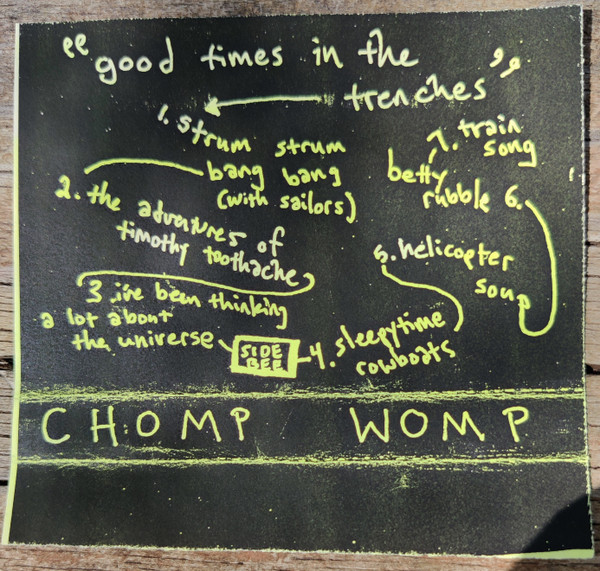 "good times in the
trenches"
1. strum strum
bang bang
(with sailors)
2. the adventures of
timothy toothache
3. i've been thinking
a lot about
the universe
SIDE
BEE
4. sleepytime
rowboats
5. helicopter
song
betty
rubble 6.
7. train
song
CHOMP WOMP